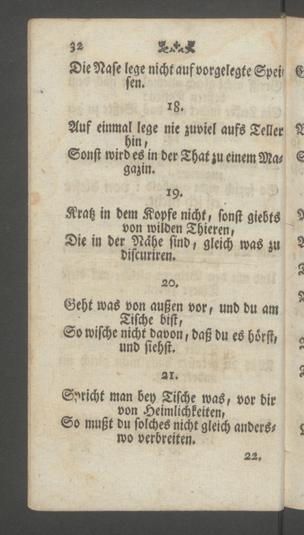 32
Die Nase lege nicht auf vorgelegte Spei⸗
sen.
18.
Auf einmal lege nie zuviel aufs Teller
hin,
Sonst wird es in der That zu einem Ma⸗
gazin.
19.
Kratz in dem Kopfe nicht, sonst giebts
von wilden Thieren,
Die in der Nähe sind, gleich was zu
discuriren.
20.
Geht was von außen vor, und du am
Tische bist,
So wische nicht davon, daß du es hörst,
und siehst.
21.
Spricht man bey Tische was, vor dir
von Heimlichkeiten,
So mußt du solches nicht gleich anders⸗
wo verbreiten.
22.